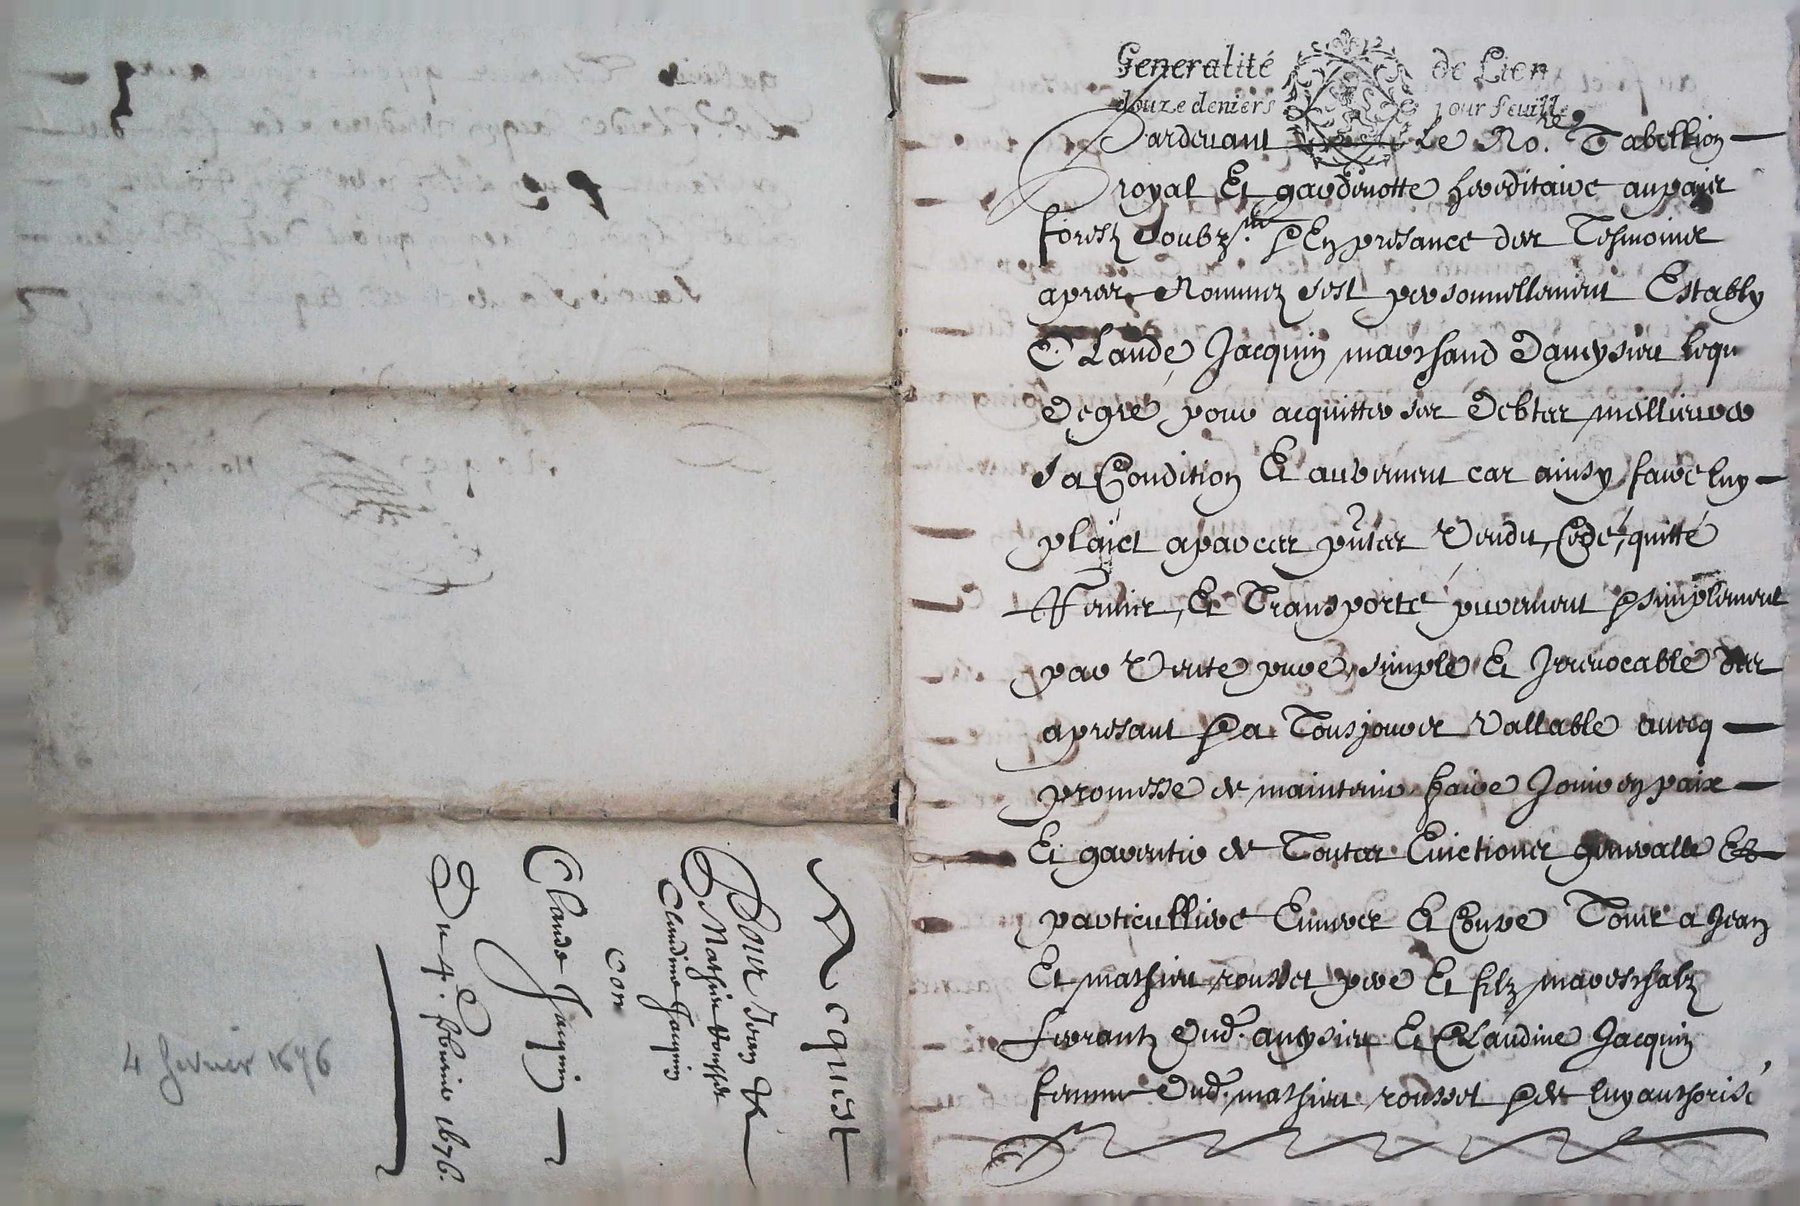 Generalité de Lion
douze deniers pour feuille
Pardevant Le No.re Tabellion
royal Et gardenotte hereditaire au pais
forestz soubz.né & En presance des Tesmoins
apres Nommez s'est personnellement Estably
Claude Jacquin marchand d'amysieu lequ
de gré pour acquitter ses debtes meilliorer
sa Condition Et autrement car ainsy faire luy
plaict a par ces p͞ntes Vendu, Cedé, quitté
Remis, Et Transporté purement & simplement
par Vente pure simple Et Irrevocable des
apresant & a Tousjours Vallable avecq
promesse de maintenir faire Jouir en paix
Et garentir de Toutes Evictions generalle Et
particulliere Envers Et Contre Tous a Jean
Et mathieu rousset pere Et filz mareschalz
ferrantz dud. amysieu Et Claudine Jacquin
femme dud. mathieu rousset & de luy authorisé
Acquest
Pour Jean &
Mathieu Rousset
Claudine Jacquin
Con
Claude Jacquin
Du 4.e febvrier 1676.
4 fevrier 1676